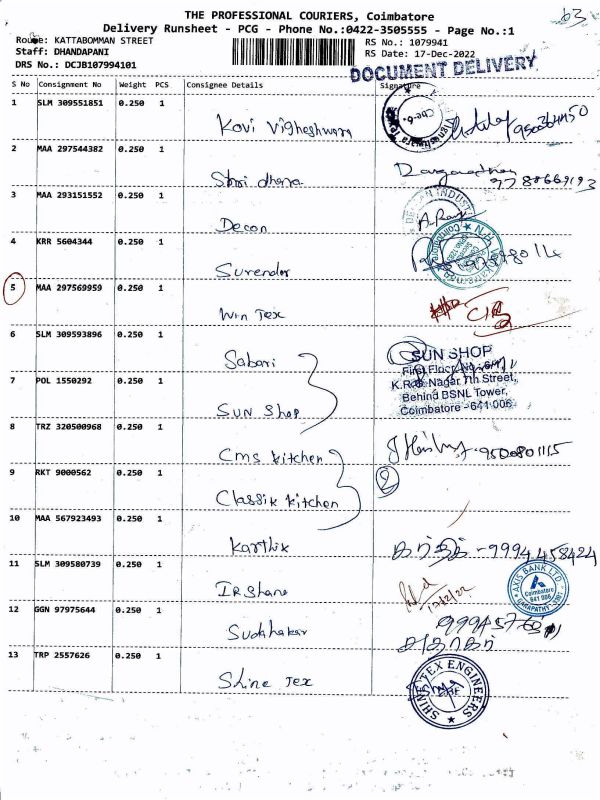 THE PROFESSIONAL COURIERS, Coimbatore
Delivery Runsheet - PCG - Phone No.:0422-3505555 - Page No.:1
63
Route: KATTABOMMAN STREET
RS No.: 1079941
Staff: DHANDAPANI
RS Date: 17-Dec-2022
DRS No.: DCJB107994101
DOCUMENT DELIVERY
S No Consignment No Weight PCS Consignee Details Signature
1 SLM 309551851 0.250 1
Kovi Vigheshwara
2 MAA 297544382 0.250 1
Shri dhara
9788669193
3 MAA 293151552 0.250 1
Decon
4 KRR 5604344 0.250 1
Surender
5 MAA 297569959 0.250 1
Win Tex
6 SLM 309593896 0.250 1
Sabari
SUN SHOP
7 POL 1550292 0.250 1
K.R.G Nagar 7th Street,
Behind BSNL Tower,
Sun Shop
Coimbatore - 641 006
8 TRZ 320500968 0.250 1
Cms kitchen
9500801115
9 RKT 9000562 0.250 1
2
Classik kitchen
10 MAA 567923493 0.250 1
Karthik
கார்த்திக் - 9994458424
11 SLM 309580739 0.250 1
AXIS BANK LTD
Coimbatore
641 006
IR Shane
17/12/22
12 GGN 97975644 0.250 1
Sudahakar
சுதாகர்
13 TRP 2557626 0.250 1
Shine Tex
SHINE TEX ENGINEERS